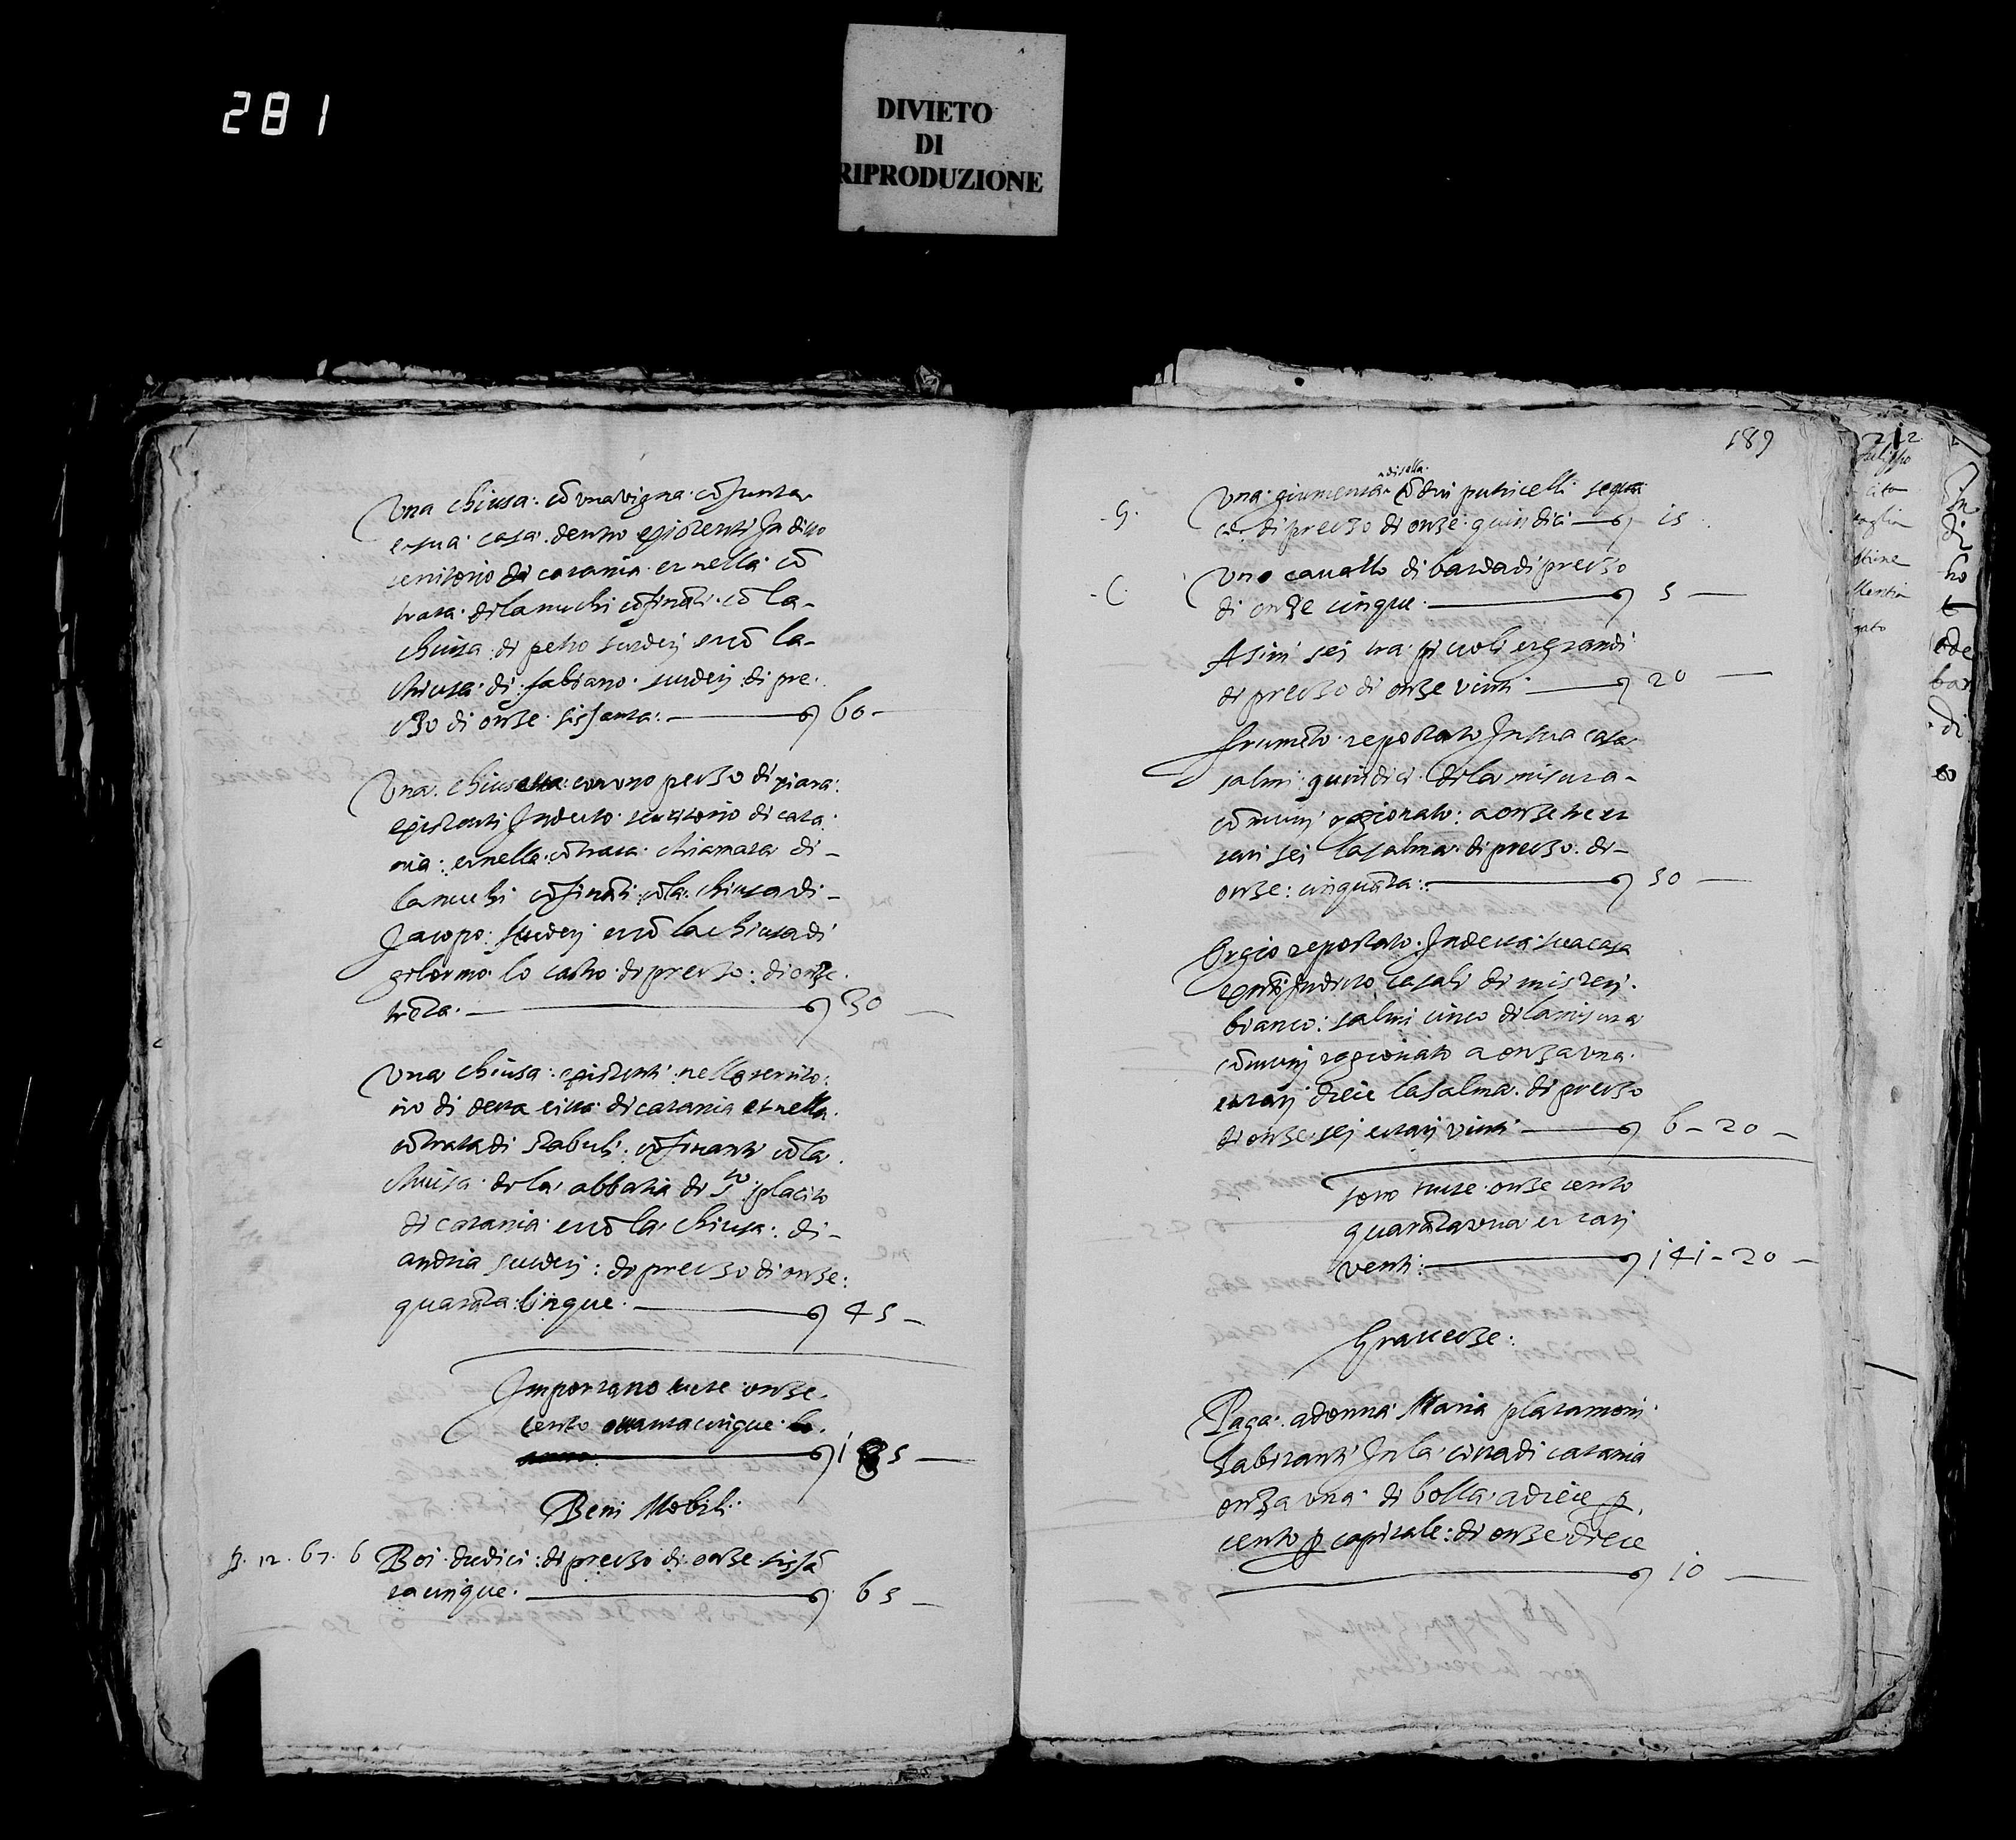 281
DIVIETO
DI
RIPRODUZIONE
Una chiusa: cõ una vigna: cõjunta
et sua casa dentro existenti In ditto
territorio di catania et nella cõ
trata di la nuchi cõfinãti cõ la
chiusa di petro scuderi et cõ la
chiusa di fabiano scuderi di pre
czo di onze sissanta: 60
Una chiusetta: con uno peczo di xiara:
existenti In decto territorio di cata
nia: et nella cõtrata chiamata di
la nuchi cõfinãti cõ la chiusa di
Jacopo: scuderi et cõ la chiusa di
gilormo lo castro di preczo: di onze
trẽta. 30
Una chiusa: existenti nello territo
rio di detta citta di catania et nella
cõtrata di stabuli cõfinanti cõ la
chiusa di la abbatia di sto placito
di catania et cõ la chiusa: di
andria scuderi: di preczo di onze:
quarãta: cinque. 45
Importano tutte onze
cento ottantacinque
185
Beni Mobili
B. 12. 67. 6 Boi dudici: di preczo di onze sissã
tacinque. 65
189
di sella
G. Una giumenta cõ dui putricelli sequa
ce di preczo di onze quindici 15
C. Uno cavallo di barda di preczo
di onze cinque 5
Asini sei tra picuoli et grandi
di preczo di onze vinti 20
frumẽto repostato In sua casa
salmi quindici di la misura
cõmuni ragionato: a onze tre et
tari sei la salma di preczo di
onze: cinquãta: 50
Orgio repostato In detta sua casa
In dicto casali di misteri
bianco: salmi cinco di la misura
cõmuni ragionato a onza una
et tarj diece la salma di preczo
di onze sej et tarj vinti 6-20
sono tutte onze cento
quarãta una et tarj
venti: 141-20
Gravecze:
Paga a donna Maria platamoni
habitanti In la citta di catania
onza una di bolla a diece p
cento p capitale: di onze diece
10